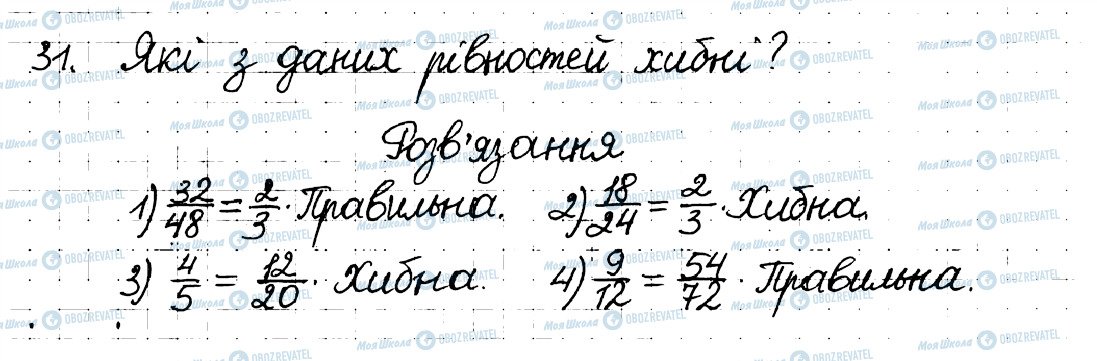 31. Які з даних рівностей хибні?
Розв'язання
1) 32/48 = 2/3. Правильна. 2) 18/24 = 2/3. Хибна.
3) 4/5 = 12/20. Хибна. 4) 9/12 = 54/72. Правильна.